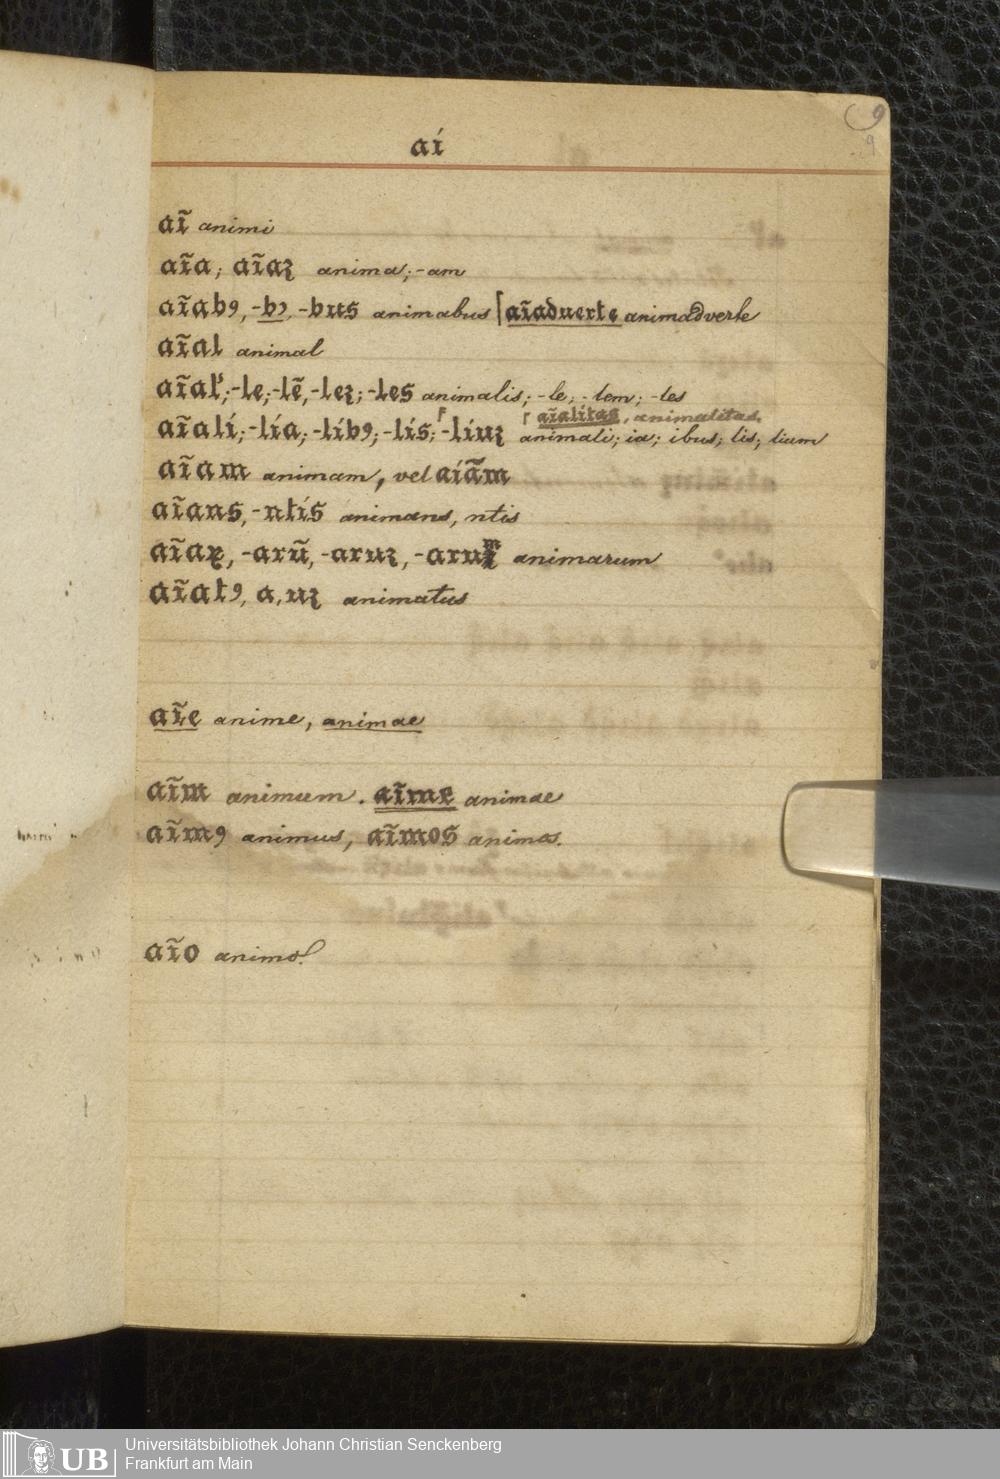 9
9
aí
aı̃ animi
aı̃a; aı̃aꝫ anima; -am
aı̃abꝯ, -bꝯ, -bus animabus ⌈aı̃aduerte animadverte
aı̃al animal
aı̃al'; -le; -lẽ, -leꝫ; -les animalis; -le; -lem; -les
⌈ ⌈ aı̃alitas, animalitas.
aı̃alí; -lía; -líbꝯ; -lís; -líuꝫ animali; ia; ibus; lis; lium
aı̃am animam, vel aíãm
aı̃ans, -ntís animans, ntis
aı̃aꝝ, -arũ, -aruꝫ, -arum animarum
aı̃atꝯ, a, uꝫ animatus
aı̃e anime, animae
aı̃m animum. aı̃me animae
aı̃mꝯ animus, aı̃mos animos.
aı̃o animo.
UB
Universitätsbibliothek Johann Christian Senckenberg
Frankfurt am Main